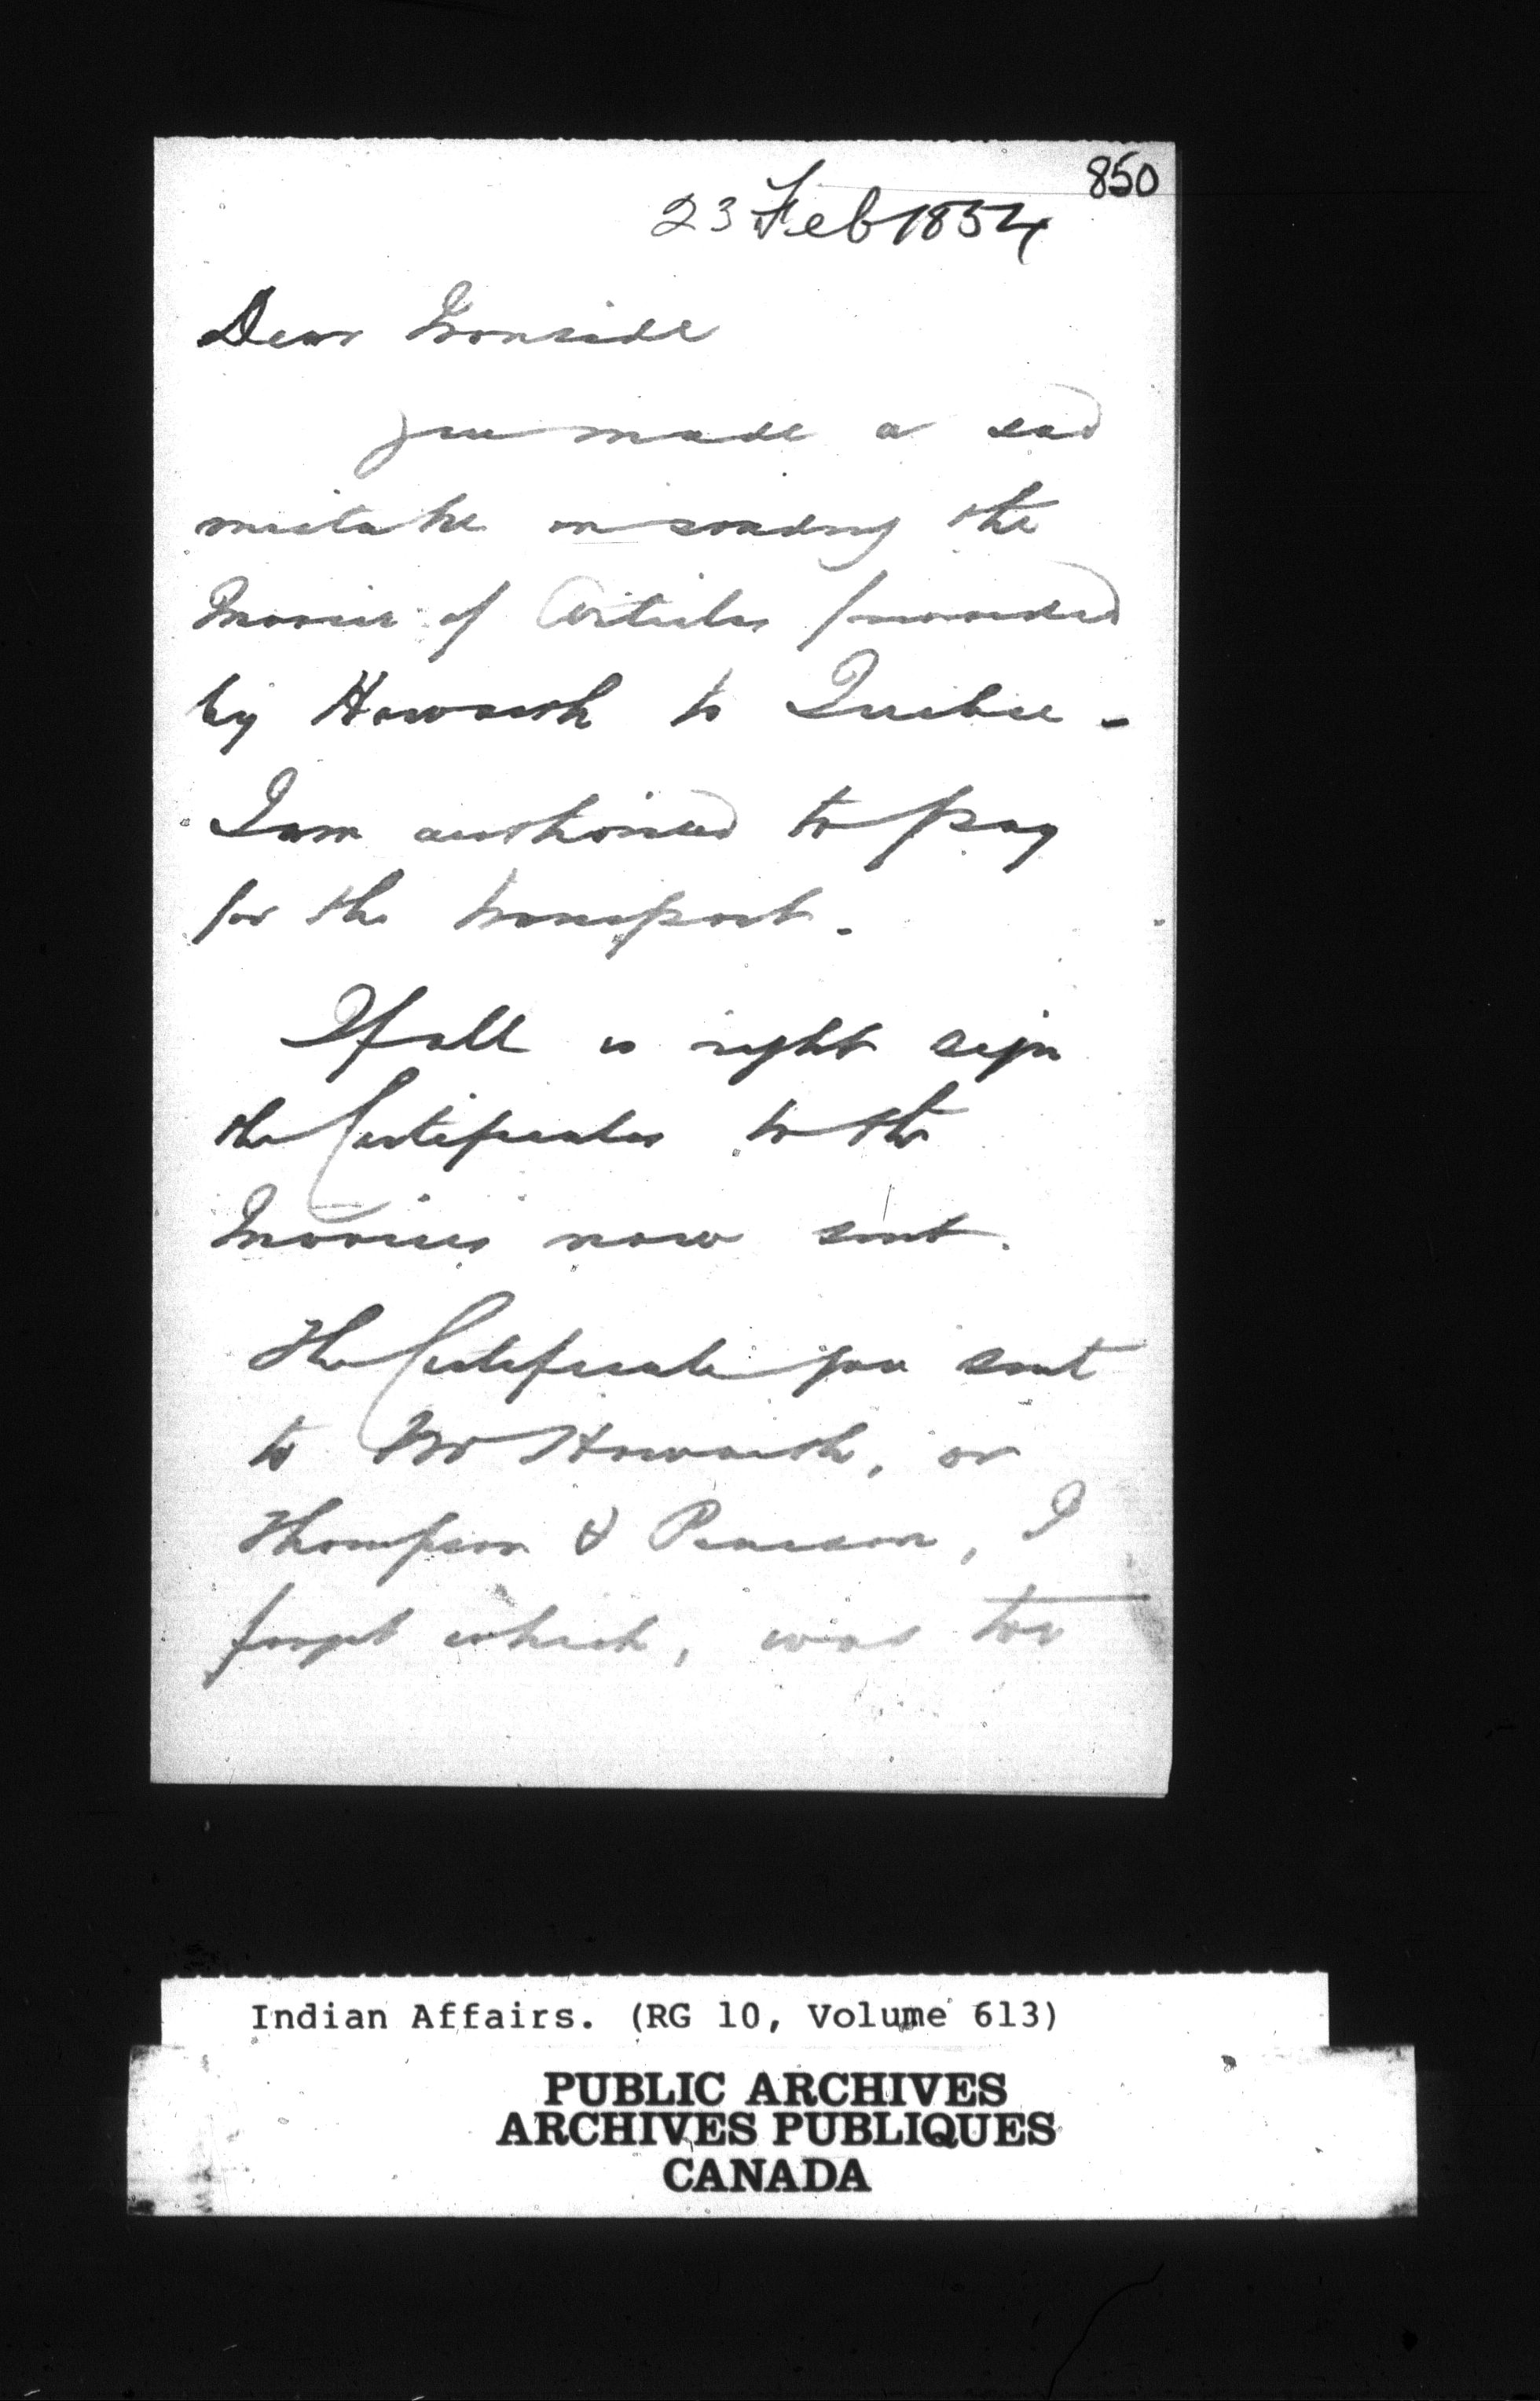 850
23 Feb 1854
Dear Ironside
you made a sad
mistake in sending the
Invoice of Articles forwarded
by Howarth to Quebec -
I am authorised to pay
for the transport -
If all is right sign
the Certificates to the
Invoices now sent.
The Certificate you sent
to Mr Howarth, or
Thompson & Pearson, I
forget which, was too
Indian Affairs. (RG 10, Volume 613)
PUBLIC ARCHIVES
ARCHIVES PUBLIQUES
CANADA